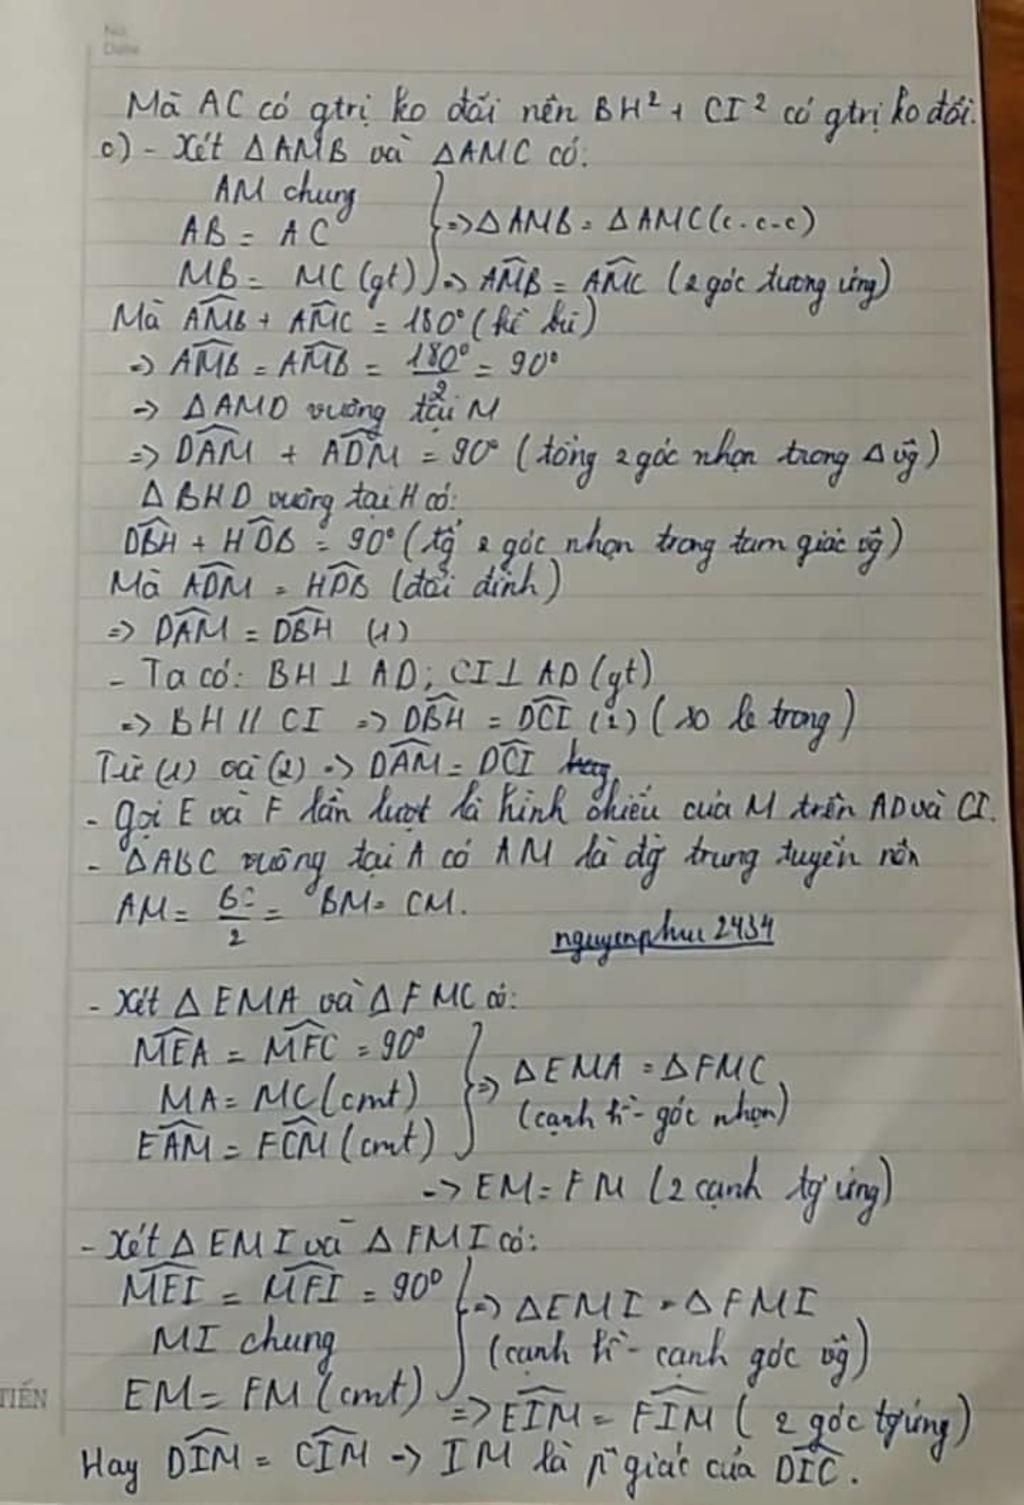 No.
Date
Mà AC có gtrị ko đổi nên BH² + CI² có gtrị ko đổi.
c) - Xét ΔAMB và ΔAMC có:
AM chung
AB = AC
MB = MC (gt)
} => ΔAMB = ΔAMC (c-c-c)
=> \widehat{AMB} = \widehat{AMC} (2 góc tương ứng)
Mà \widehat{AMB} + \widehat{AMC} = 180° (kề bù)
=> \widehat{AMB} = \widehat{AMB} = \frac{180°}{2} = 90°
=> ΔAMD vuông tại M
=> \widehat{DAM} + \widehat{ADM} = 90° (tổng 2 góc nhọn trong Δ vg)
ΔBHD vuông tại H có:
\widehat{DBH} + \widehat{HDB} = 90° (tg 2 góc nhọn trong tam giác vg)
Mà \widehat{ADM} = \widehat{HDB} (đối đỉnh)
=> \widehat{DAM} = \widehat{DBH} (1)
- Ta có: BH ⊥ AD; CI ⊥ AD (gt)
=> BH // CI => \widehat{DBH} = \widehat{DCI} (2) (so le trong)
Từ (1) và (2) => \widehat{DAM} = \widehat{DCI} hay
- Gọi E và F lần lượt là hình chiếu của M trên AD và CI.
- ΔABC vuông tại A có AM là đg trung tuyến nên
AM = \frac{BC}{2} = BM = CM.
nguyenphuc2434
- Xét ΔEMA và ΔFMC có:
\widehat{MEA} = \widehat{MFC} = 90°
MA = MC (cmt)
\widehat{EAM} = \widehat{FCM} (cmt)
} => ΔEMA = ΔFMC
(cạnh h` - góc nhọn)
=> EM = FM (2 cạnh tg ứng)
- Xét ΔEMI và ΔFMI có:
\widehat{MEI} = \widehat{MFI} = 90°
MI chung
EM = FM (cmt)
} => ΔEMI = ΔFMI
(cạnh h` - cạnh góc vg)
=> \widehat{EIM} = \widehat{FIM} (2 góc tg ứng)
Hay \widehat{DIM} = \widehat{CIM} => IM là pⁿ giác của \widehat{DIC}.
TIẾN